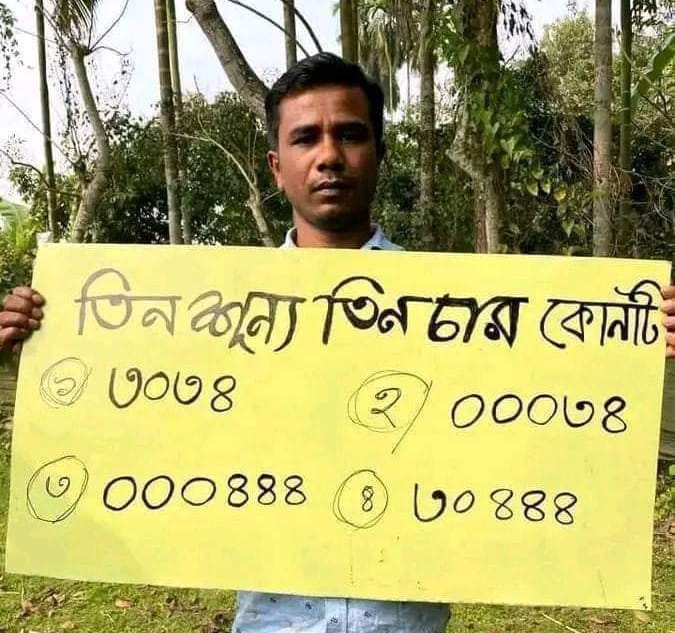 তিন শূন্য তিন চার কোনটি
১ ৩০৩৪ ২ ০০০৩৪
৩ ০০০৪৪৪ ৪ ৩০৪৪৪